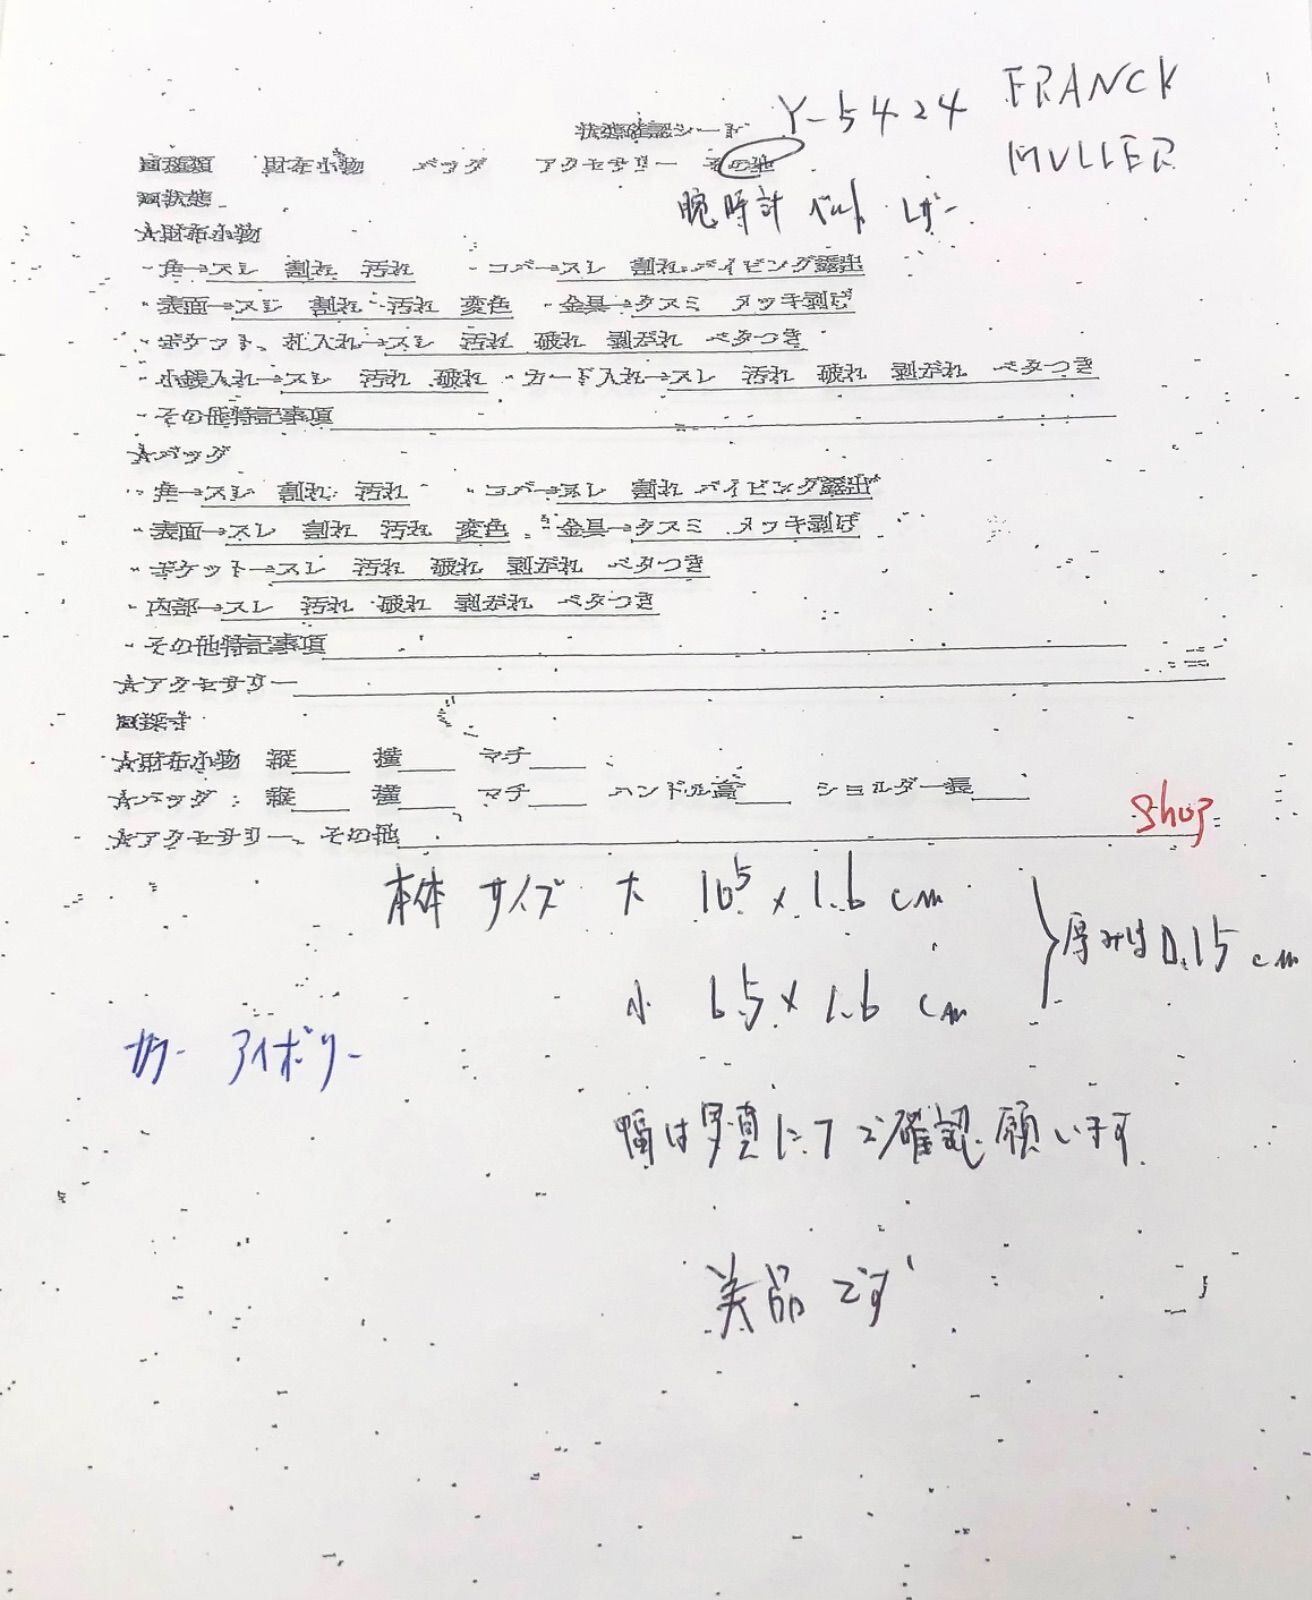 状態確認シート Y-5424 FRANCK
MULLER
回種類 財布小物 バッグ アクセサリー その他
腕時計 ベルト レザー
回状態
☆財布小物
・角→スレ 割れ 汚れ ・コバ→スレ 割れ パイピング露出
・表面→スレ 割れ 汚れ 変色 ・金具→クスミ メッキ剥げ
・ポケット、札入れ→スレ 汚れ 破れ 剥がれ ベタつき
・小銭入れ→スレ 汚れ 破れ ・カード入れ→スレ 汚れ 破れ 剥がれ ベタつき
・その他特記事項
☆バッグ
・角→スレ 割れ 汚れ ・コバ→スレ 割れ パイピング露出
・表面→スレ 割れ 汚れ 変色 ・金具→クスミ メッキ剥げ
・ポケット→スレ 汚れ 破れ 剥がれ ベタつき
・内部→スレ 汚れ 破れ 剥がれ ベタつき
・その他特記事項
☆アクセサリー
回採寸
☆財布小物 縦 横 マチ
☆バッグ:縦 横 マチ ハンドル高 ショルダー長
☆アクセサリー、その他
shop
本体 サイズ 大 10.5 × 1.6 cm
厚みは0.15cm
小 6.5 × 1.6 cm
カラー アイボリー
幅は写真にてご確認願います
美品です